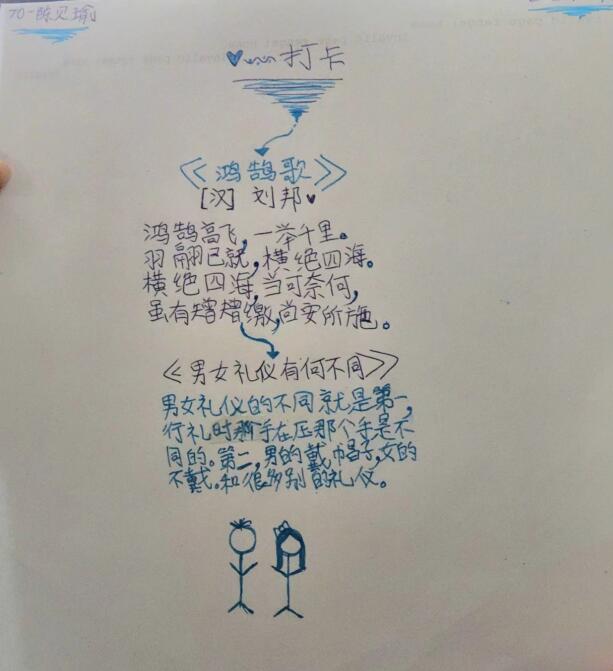 70-陈贝瑜
打卡
《鸿鹄歌》
[汉] 刘邦
鸿鹄高飞,一举千里。
羽翮已就,横绝四海。
横绝四海,当可奈何,
虽有矰矰缴,尚安所施。
《男女礼仪有何不同》
男女礼仪的不同就是第一,
行礼时 手在压那个手是不
同的。第二,男的戴帽子,女的
不戴。和很多别的礼仪。